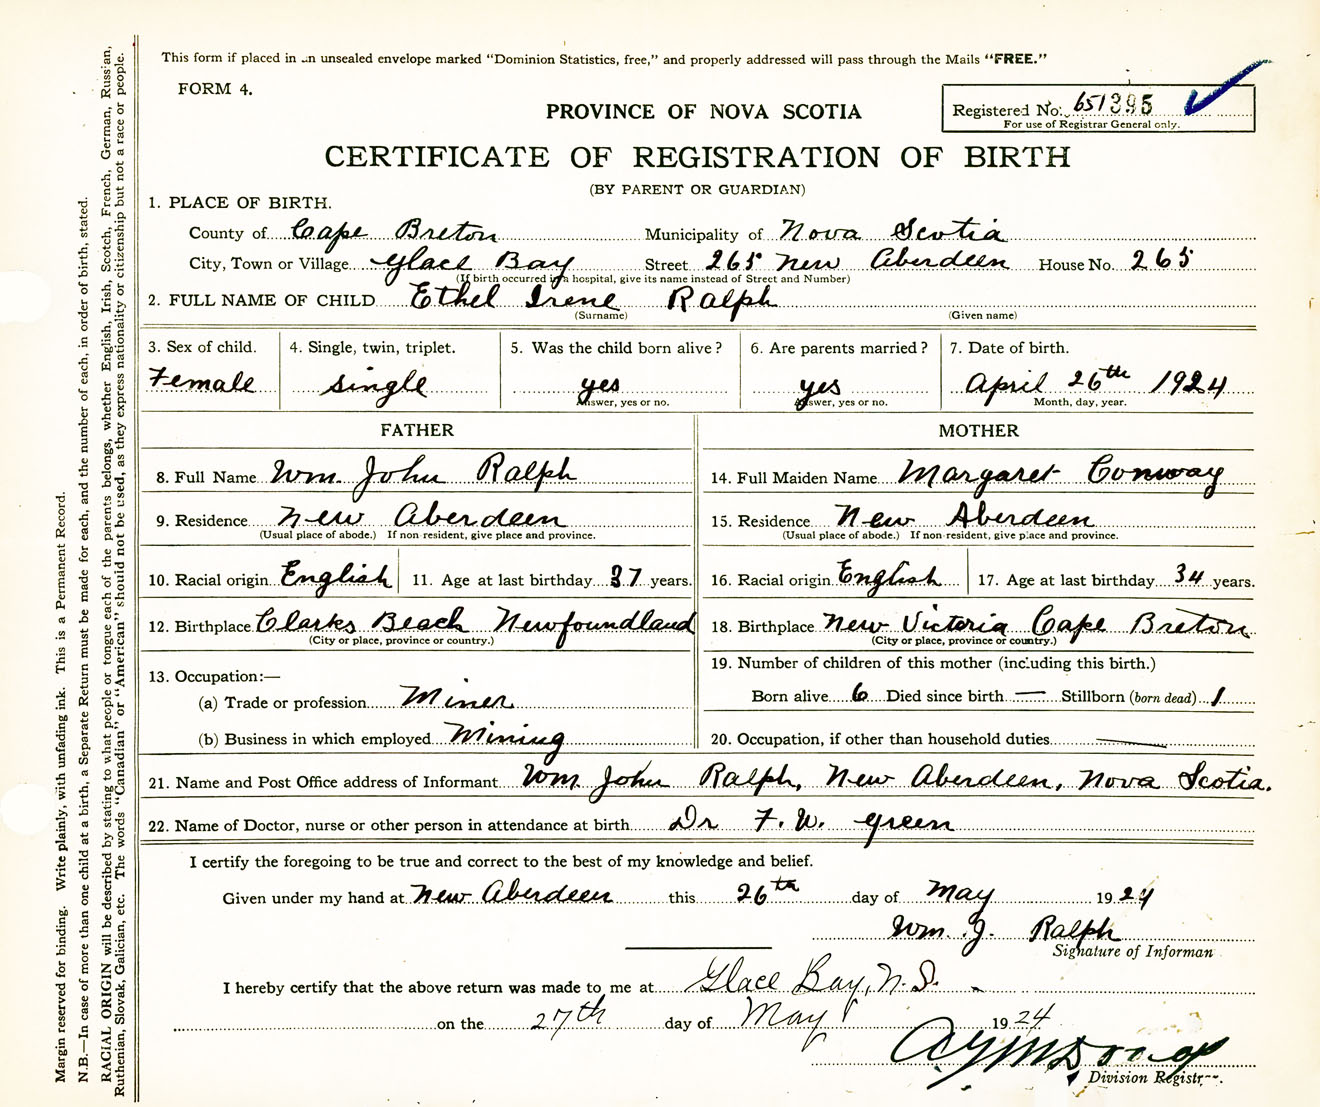 This form if placed in an unsealed envelope marked “Dominion Statistics, free,” and properly addressed will pass through the Mails “FREE.”
FORM 4.
PROVINCE OF NOVA SCOTIA
Registered No. 651395
For use of Registrar General only.
CERTIFICATE OF REGISTRATION OF BIRTH
(BY PARENT OR GUARDIAN)
1. PLACE OF BIRTH.
County of Cape Breton Municipality of Nova Scotia
City, Town or Village Glace Bay Street 265 New Aberdeen House No. 265
(If birth occurred in a hospital, give its name instead of Street and Number)
2. FULL NAME OF CHILD Ethel Irene Ralph
(Surname) (Given name)
3. Sex of child. 4. Single, twin, triplet. 5. Was the child born alive? 6. Are parents married? 7. Date of birth.
Female single yes yes April 26th 1924
Answer, yes or no. Answer, yes or no. Month, day, year.
FATHER MOTHER
8. Full Name Wm. John Ralph 14. Full Maiden Name Margaret Conway
9. Residence New Aberdeen 15. Residence New Aberdeen
(Usual place of abode.) If non-resident, give place and province. (Usual place of abode.) If non-resident, give place and province.
10. Racial origin English 11. Age at last birthday 37 years. 16. Racial origin English 17. Age at last birthday 34 years.
12. Birthplace Clarks Beach Newfoundland 18. Birthplace New Victoria Cape Breton
(City or place, province or country.) (City or place, province or country.)
19. Number of children of this mother (including this birth.)
13. Occupation:—
(a) Trade or profession Miner Born alive 6 Died since birth — Stillborn (born dead) 1
(b) Business in which employed Mining 20. Occupation, if other than household duties —
21. Name and Post Office address of Informant Wm. John Ralph, New Aberdeen, Nova Scotia.
22. Name of Doctor, nurse or other person in attendance at birth Dr F. W. Green
I certify the foregoing to be true and correct to the best of my knowledge and belief.
Given under my hand at New Aberdeen this 26th day of May 1924
Wm. J. Ralph
Signature of Informan
I hereby certify that the above return was made to me at Glace Bay, N.S.
on the 27th day of May 1924
Division Registr
Margin reserved for binding. Write plainly, with unfading ink. This is a Permanent Record.
N.B.—In case of more than one child at a birth, a Separate Return must be made for each, and the number of each, in order of birth, stated.
RACIAL ORIGIN will be described by stating to what people or tongue each of the parents belongs, whether English, Irish, Scotch, French, German, Russian,
Ruthenian, Slovak, Galician, etc. The words “Canadian” or “American” should not be used, as they express nationality or citizenship but not a race or people.